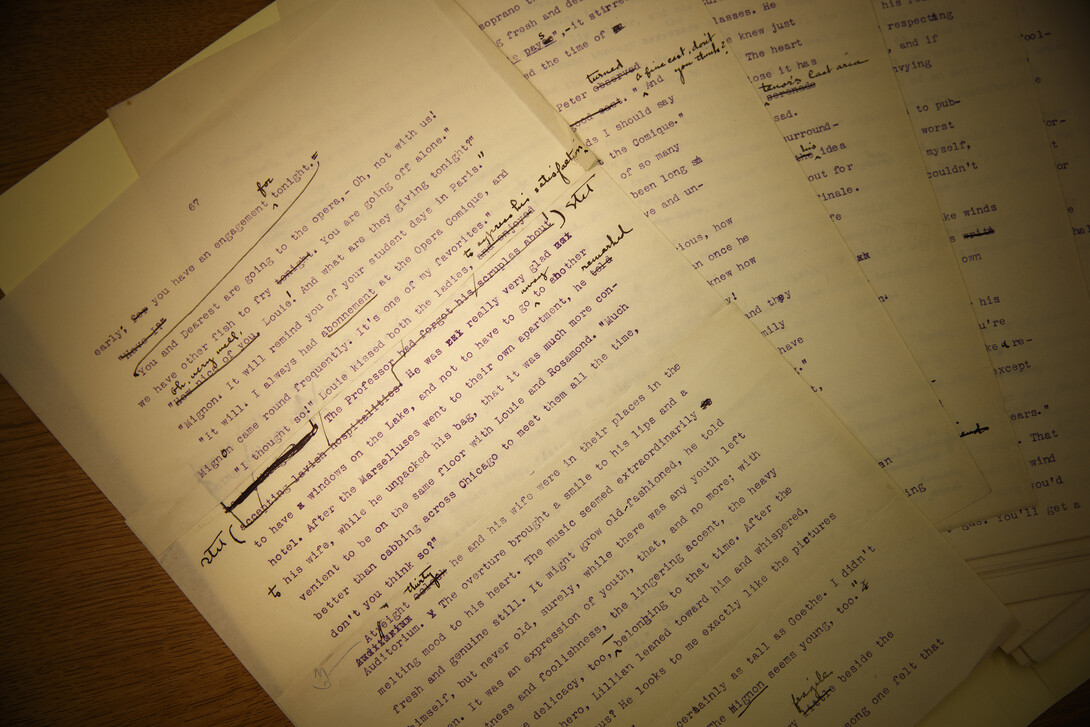 67
early; you have an engagement for tonight."
"You and Dearest are going to the opera,- Oh, not with us!
we have other fish to fry tonight. You are going off alone."
Oh, very well,
"How kind of you, Louie! And what are they giving tonight?"
"Mignon. It will remind you of your student days in Paris."
"It will. I always had abonnement at the Opera Comique, and
Mignon came round frequently. It's one of my favorites."
to express his satisfaction
"I thought so!" Louie kissed both the ladies, and enjoyed
The Professor had forgot his scruples about) stet
stet (accepting lavish hospitalities. He was really very glad
to have windows on the Lake, and not to have to go away to another
remarked
hotel. After the Marselluses went to their own apartment, he told
to his wife, while he unpacked his bag, that it was much more con-
venient to be on the same floor with Louie and Rosamond. "Much
better than cabbing across Chicago to meet them all the time,
don't you think so?"
thirty
At eight he and his wife were in their places in the
Auditorium
Auditorium. The overture brought a smile to his lips and a
melting mood to his heart. The music seemed extraordinarily
fresh and genuine still. It might grow old-fashioned, he told
himself, but never old, surely, while there was any youth left
en. It was an expression of youth, that, and no more; with
tness and foolishness, the lingering accent, the heavy
s delicacy, too,- belonging to that time. After the
hero, Lillian leaned toward him and whispered,
us? He looks to me exactly like the pictures
certainly as tall as Goethe. I didn't
he Mignon seems young, too."
beside the
song one felt that
soprano
g fresh and de
pays",-it stirre
ed the time of
turned a fine cast, don't you think?
Peter observed
good cast." And
ds I should say
the Comique."
of so many
been long
ve and un-
ious, how
n once he
knew how
and they
mily
have
asses. He
e knew just
The heart
ose it has
tenor's last aria
serenade
sad.
urround-
his idea
out for
inale.
fe
his
respecting
, and if
vying
to pub-
worst
myself,
couldn't
ke winds
spite
own
his
u're
ked re-
except
and
ears."
That
wind
ou'd
You'll get a